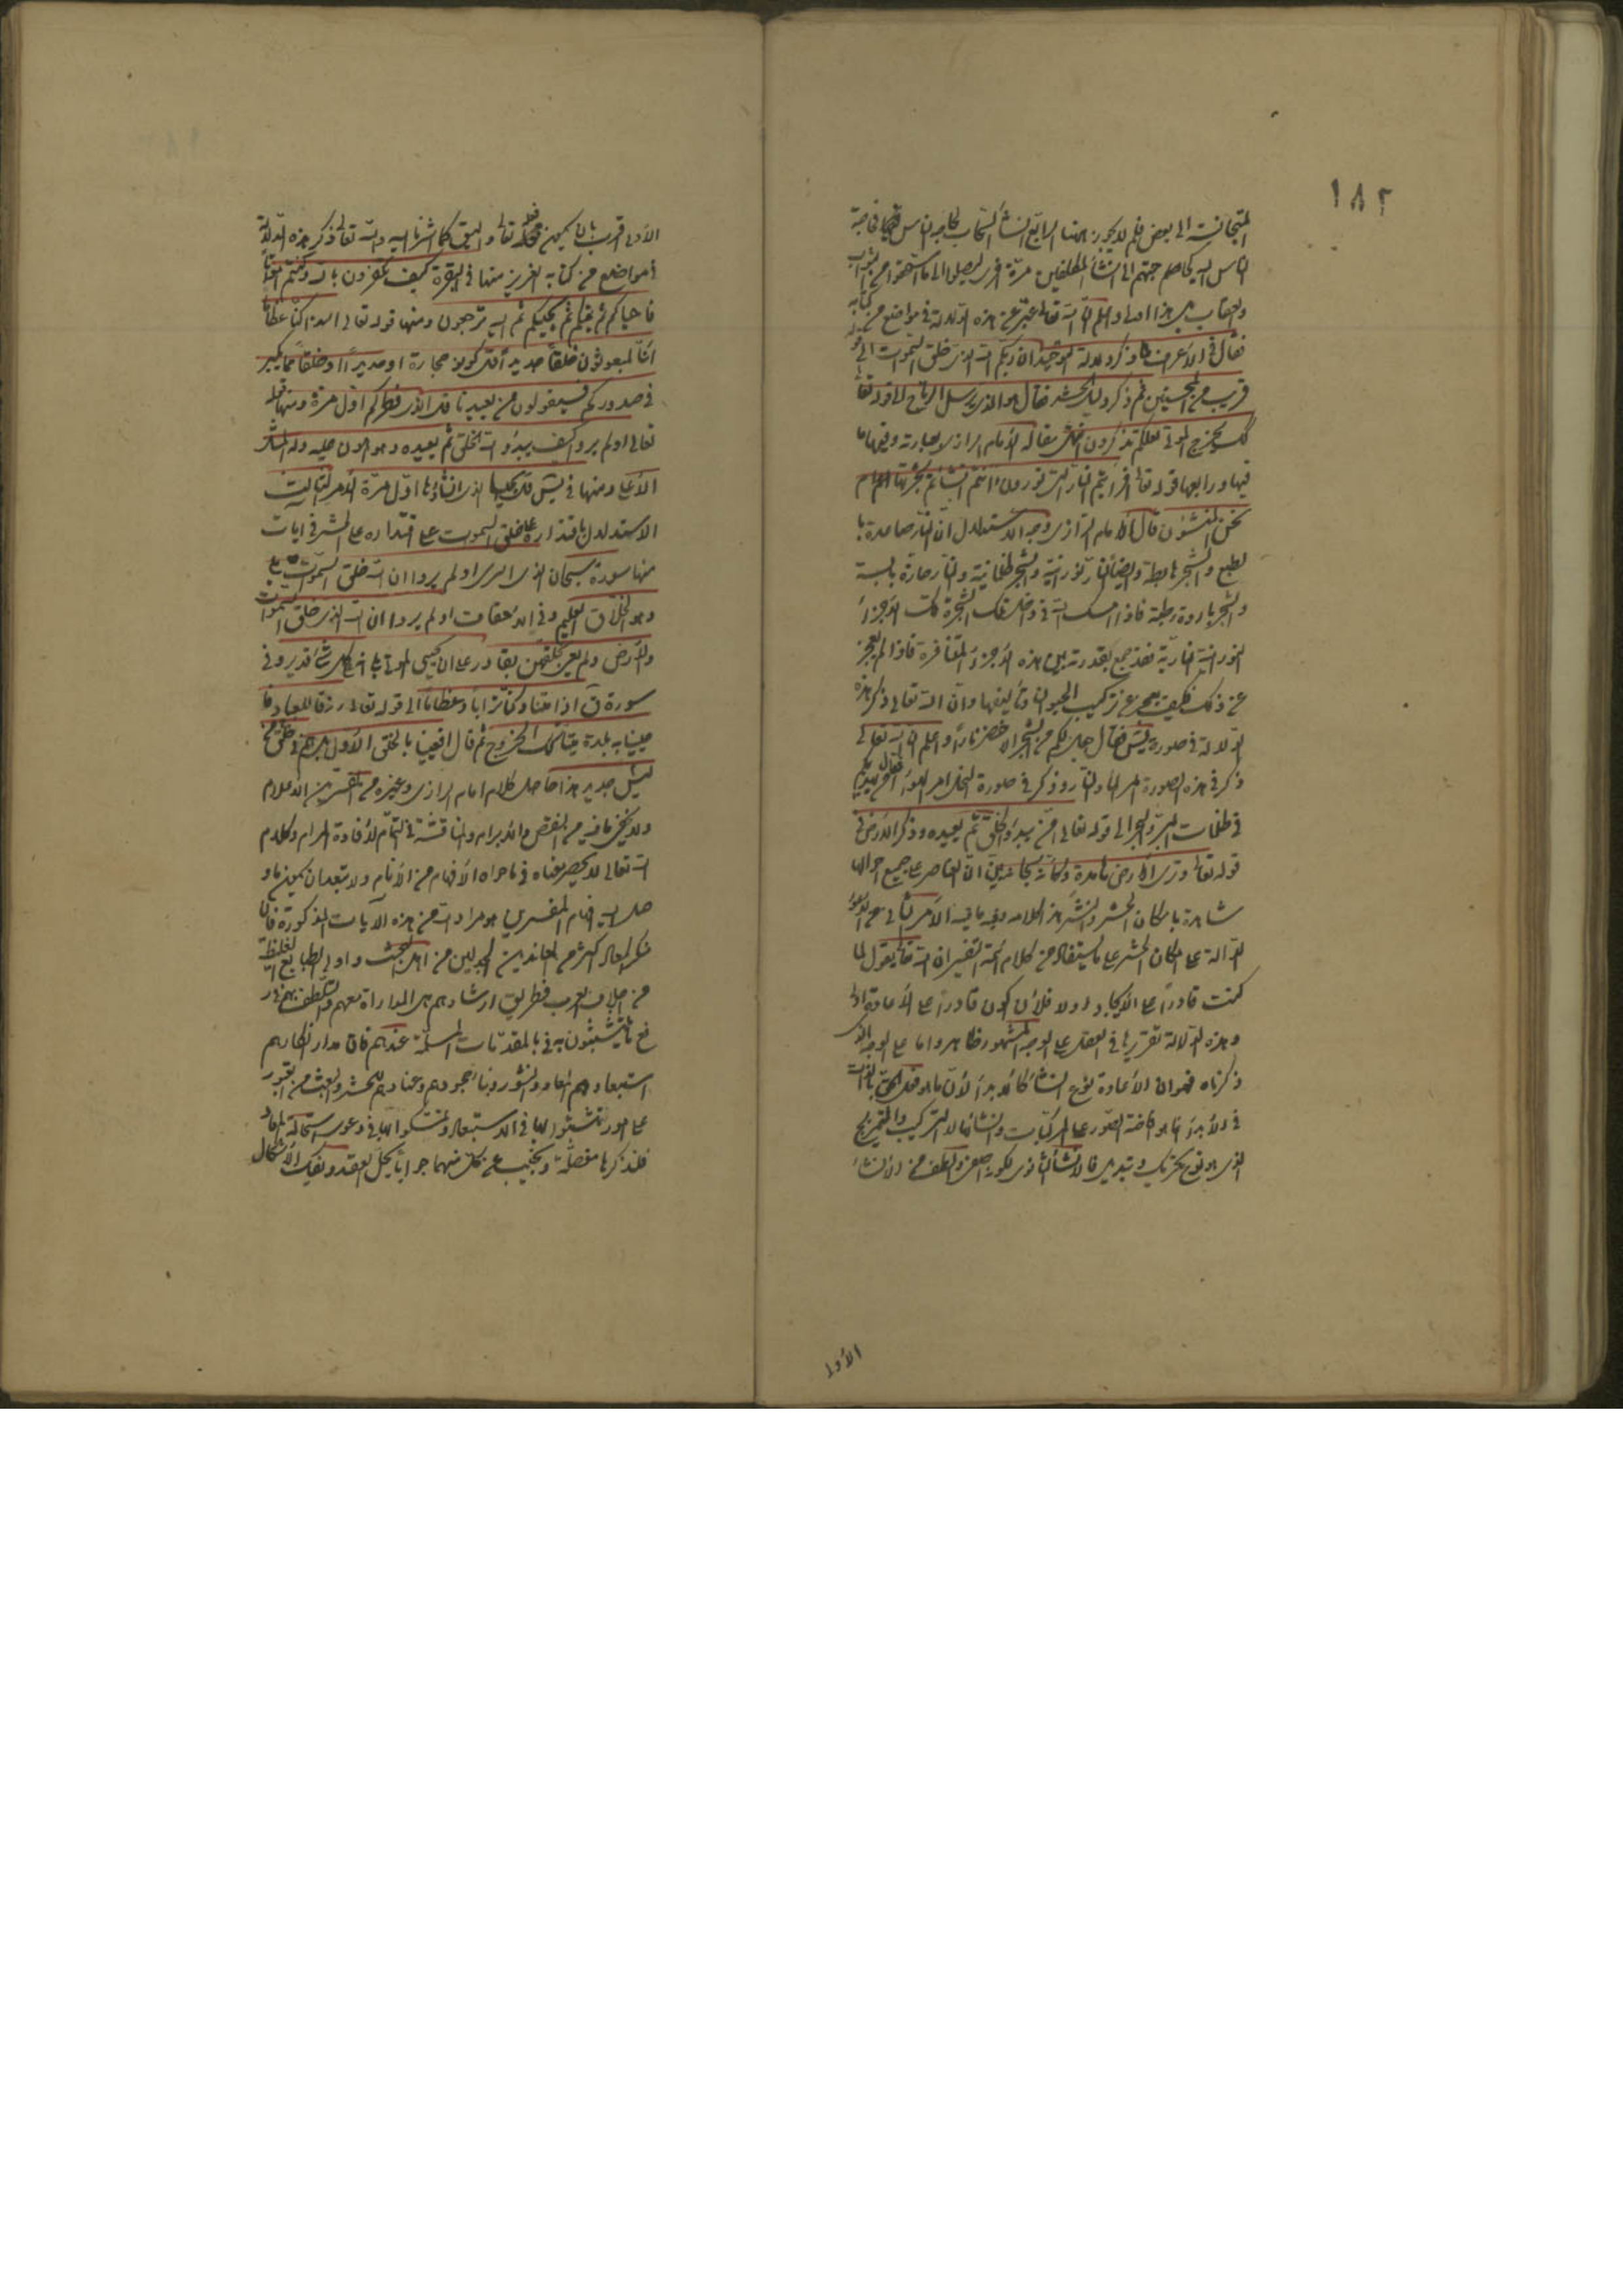 ١٨٢
المتجانسة الى بعض فلم لا يجوز ههنا الرابع انشأ السحاب لحاجة الناس
الناس اليه كما هم جئتهم الى انشأ المكلفين مرة اخرى ليصلوا الى ما استحقوا من الثواب
والعقاب هذا اولى واعلم ان الله تعالى عبر عن هذه الدلالة في مواضع من كتابه
فقال في الاعراف لما ذكر دلالة التوحيد ان ربكم الله الذى خلق السموات الى
قريب من المحسنين ثم ذكر دليل الحشر فقال هو الذى يرسل الرياح الى قوله تعا
كذلك نخرج الموتى لعلكم تذكرون مقالة الامام الرازى بعبارته وفيها ما
فيها ورابعها قوله تعالى افرأيتم النار التى تورون أانتم انشأتم شجرتها ام
نحن المنشؤن قال الامام الرازى وجه الاستدلال ان النار صاعدة با
لطبع والشجر هابطة وايضا النار نورانية والشجر ظلمانية والنار حارة يابسة
والشجر باردة رطبة فاذا امسك الله في داخل تلك الشجرة تلك الاجزاء
النورانية النارية فقد جمع بقدرته بين هذه الاجزاء المتنافرة فاذا لم يعجز
عن ذلك فكيف يعجز عن تركيب الحيوانات وتأليفها وان الله تعالى ذكر هذه
الدلالة في صورة يس فقال جعل لكم من الشجر الاخضر نارا واعلم ان الله تعالى
ذكر في هذه الصورة امر الماء والنار وذكر في صورة النحل امر الهواء
في ظلمات البر والبحر الى قوله تعالى امن يبدؤ الخلق ثم يعيده وذكر الارض في
قوله تعالى وترى الارض هامدة وكانه سبحانه بين ان العناصر على جميع احوالها
شاهدة بامكان الحشر والنشر هذا كلامه وفيه ما فيه الامر الثانى من
الدالة على امكان الحشر على ما يستفاد من كلام ائمة التفسير ان الله تعالى يقول لما
كنت قادرا على الايجاد اولا فلان اكون قادرا على الاعادة اولى
وهذه الدلالة تقريرها في العقل على الوجه المشهور ظاهر واما على الوجه الذى
ذكرناه فهو ان الاعادة نوع انشأ كالابداء لان ما هو فعل الحق بالذات
في الابداء انما هو افاضة الصور على المركبات وانشائها لا التركيب والتمزيج
الذى هو نوع تحريك وتبديل فالانشأ الثانوى لكونه اصفى والطف من الانشاء
الاولى
الاولى اقرب بان يكون فعله تعالى واليق كما اشرنا اليه والله تعالى ذكر هذه الدلالة
في مواضع من كتابه العزيز منها في البقرة كيف تكفرون بالله وكنتم امواتا
فاحياكم ثم يميتكم ثم يحييكم ثم اليه ترجعون ومنها قوله تعالى ائذا كنا عظاما
ائنا لمبعوثون خلقا جديدا قل كونوا حجارة او حديدا او خلقا مما يكبر
في صدوركم فسيقولون من يعيدنا قل الذى فطركم اول مرة ومنها قوله
تعالى اولم يروا كيف يبدؤ الله الخلق ثم يعيده وهو اهون عليه وله المثل
الاعلى ومنها في يس قل يحييها الذى انشأها اول مرة الامر الثالث
الاستدلال باقتداره على خلق السموات على اقتداره على الحشر في ايات
منها سورة سبحان الذى اسرى اولم يروا ان الله خلق السموات بلى
وهو الخلاق العليم وفى الاحقاف اولم يروا ان الله الذى خلق السموات
والارض ولم يعى بخلقهن بقادر على ان يحيى الموتى بلى انه على كل شئ قدير وفى
سورة ق ائذا متنا وكنا ترابا وعظاما الى قوله تعالى رزقا للعباد وا
حيينا به بلدة ميتا كذلك الخروج ثم قال افعيينا بالخلق الاول بل هم في خلق من
لبس جديد هذا حاصل كلام امام الرازى وغيره من المفسرين الاعلام
ولا يخفى ما فيه من النقص والابرام والمناقشة في التمام لافادة المرام وكلام
الله تعالى لا يحصر معناه في ما حواه الافهام من الانام ولا يستبعد ان يكون ما و
صل اليه افهام المفسرين هو مراد الله من هذه الايات المذكورة فان
منكر المعاد اكثرهم المعاندين الجدليين من اهل البحث واولى الطبايع الغليظة
من اجلاف العرب فطريق ارشادهم هى المداراة معهم والتلطف بهم في د
فع ما يتشبثون به في بالمقدمات المسلمة عندهم فان مدار انكارهم
استبعادهم المعاد والنشور وبناء جحودهم وعنادهم للحشر والبعث من القبور
على امور تشبثوا بها في الاستبعاد وتمسكوا بها في دعوى استحالة المعاد
فلنذكرها مفصلة ونجيب عن كل منهما جوابا يحل العقد ويفك الاشكال